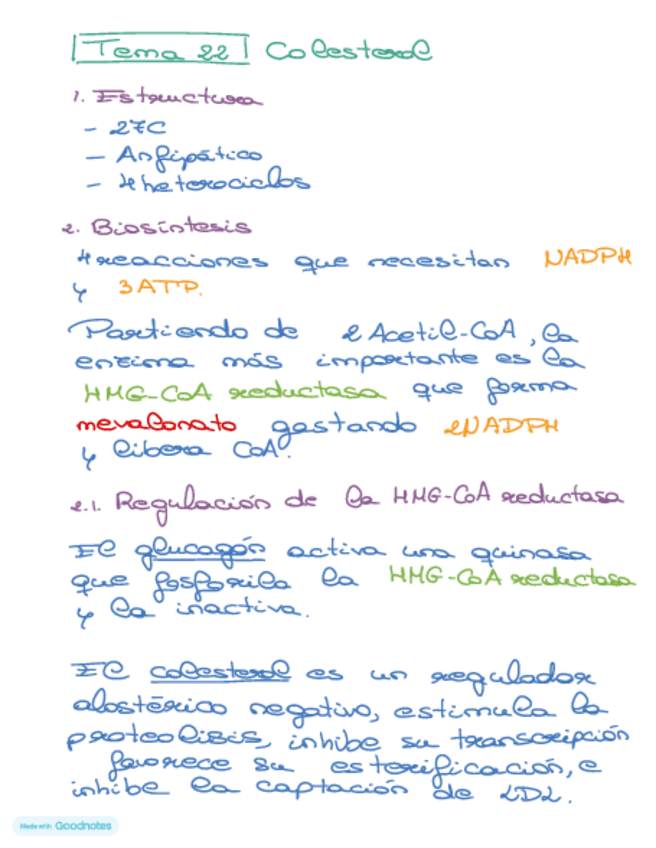 Tema 22 Colesterol
1. Estructura
- 27C
- Anfipático
- 4 heterociclos
2. Biosíntesis
4 reacciones que necesitan NADPH
y 3ATP.
Partiendo de 2 Acetil-CoA, la
enzima más importante es la
HMG-CoA reductasa que forma
mevalonato gastando 2NADPH
y libera CoA.
2.1. Regulación de la HMG-CoA reductasa
El glucagón activa una quinasa
que fosforila la HMG-CoA reductasa
y la inactiva.
El colesterol es un regulador
alostérico negativo, estimula la
proteolisis, inhibe su transcripción
favorece su esterificación, e
inhibe la captación de LDL.
Made with Goodnotes